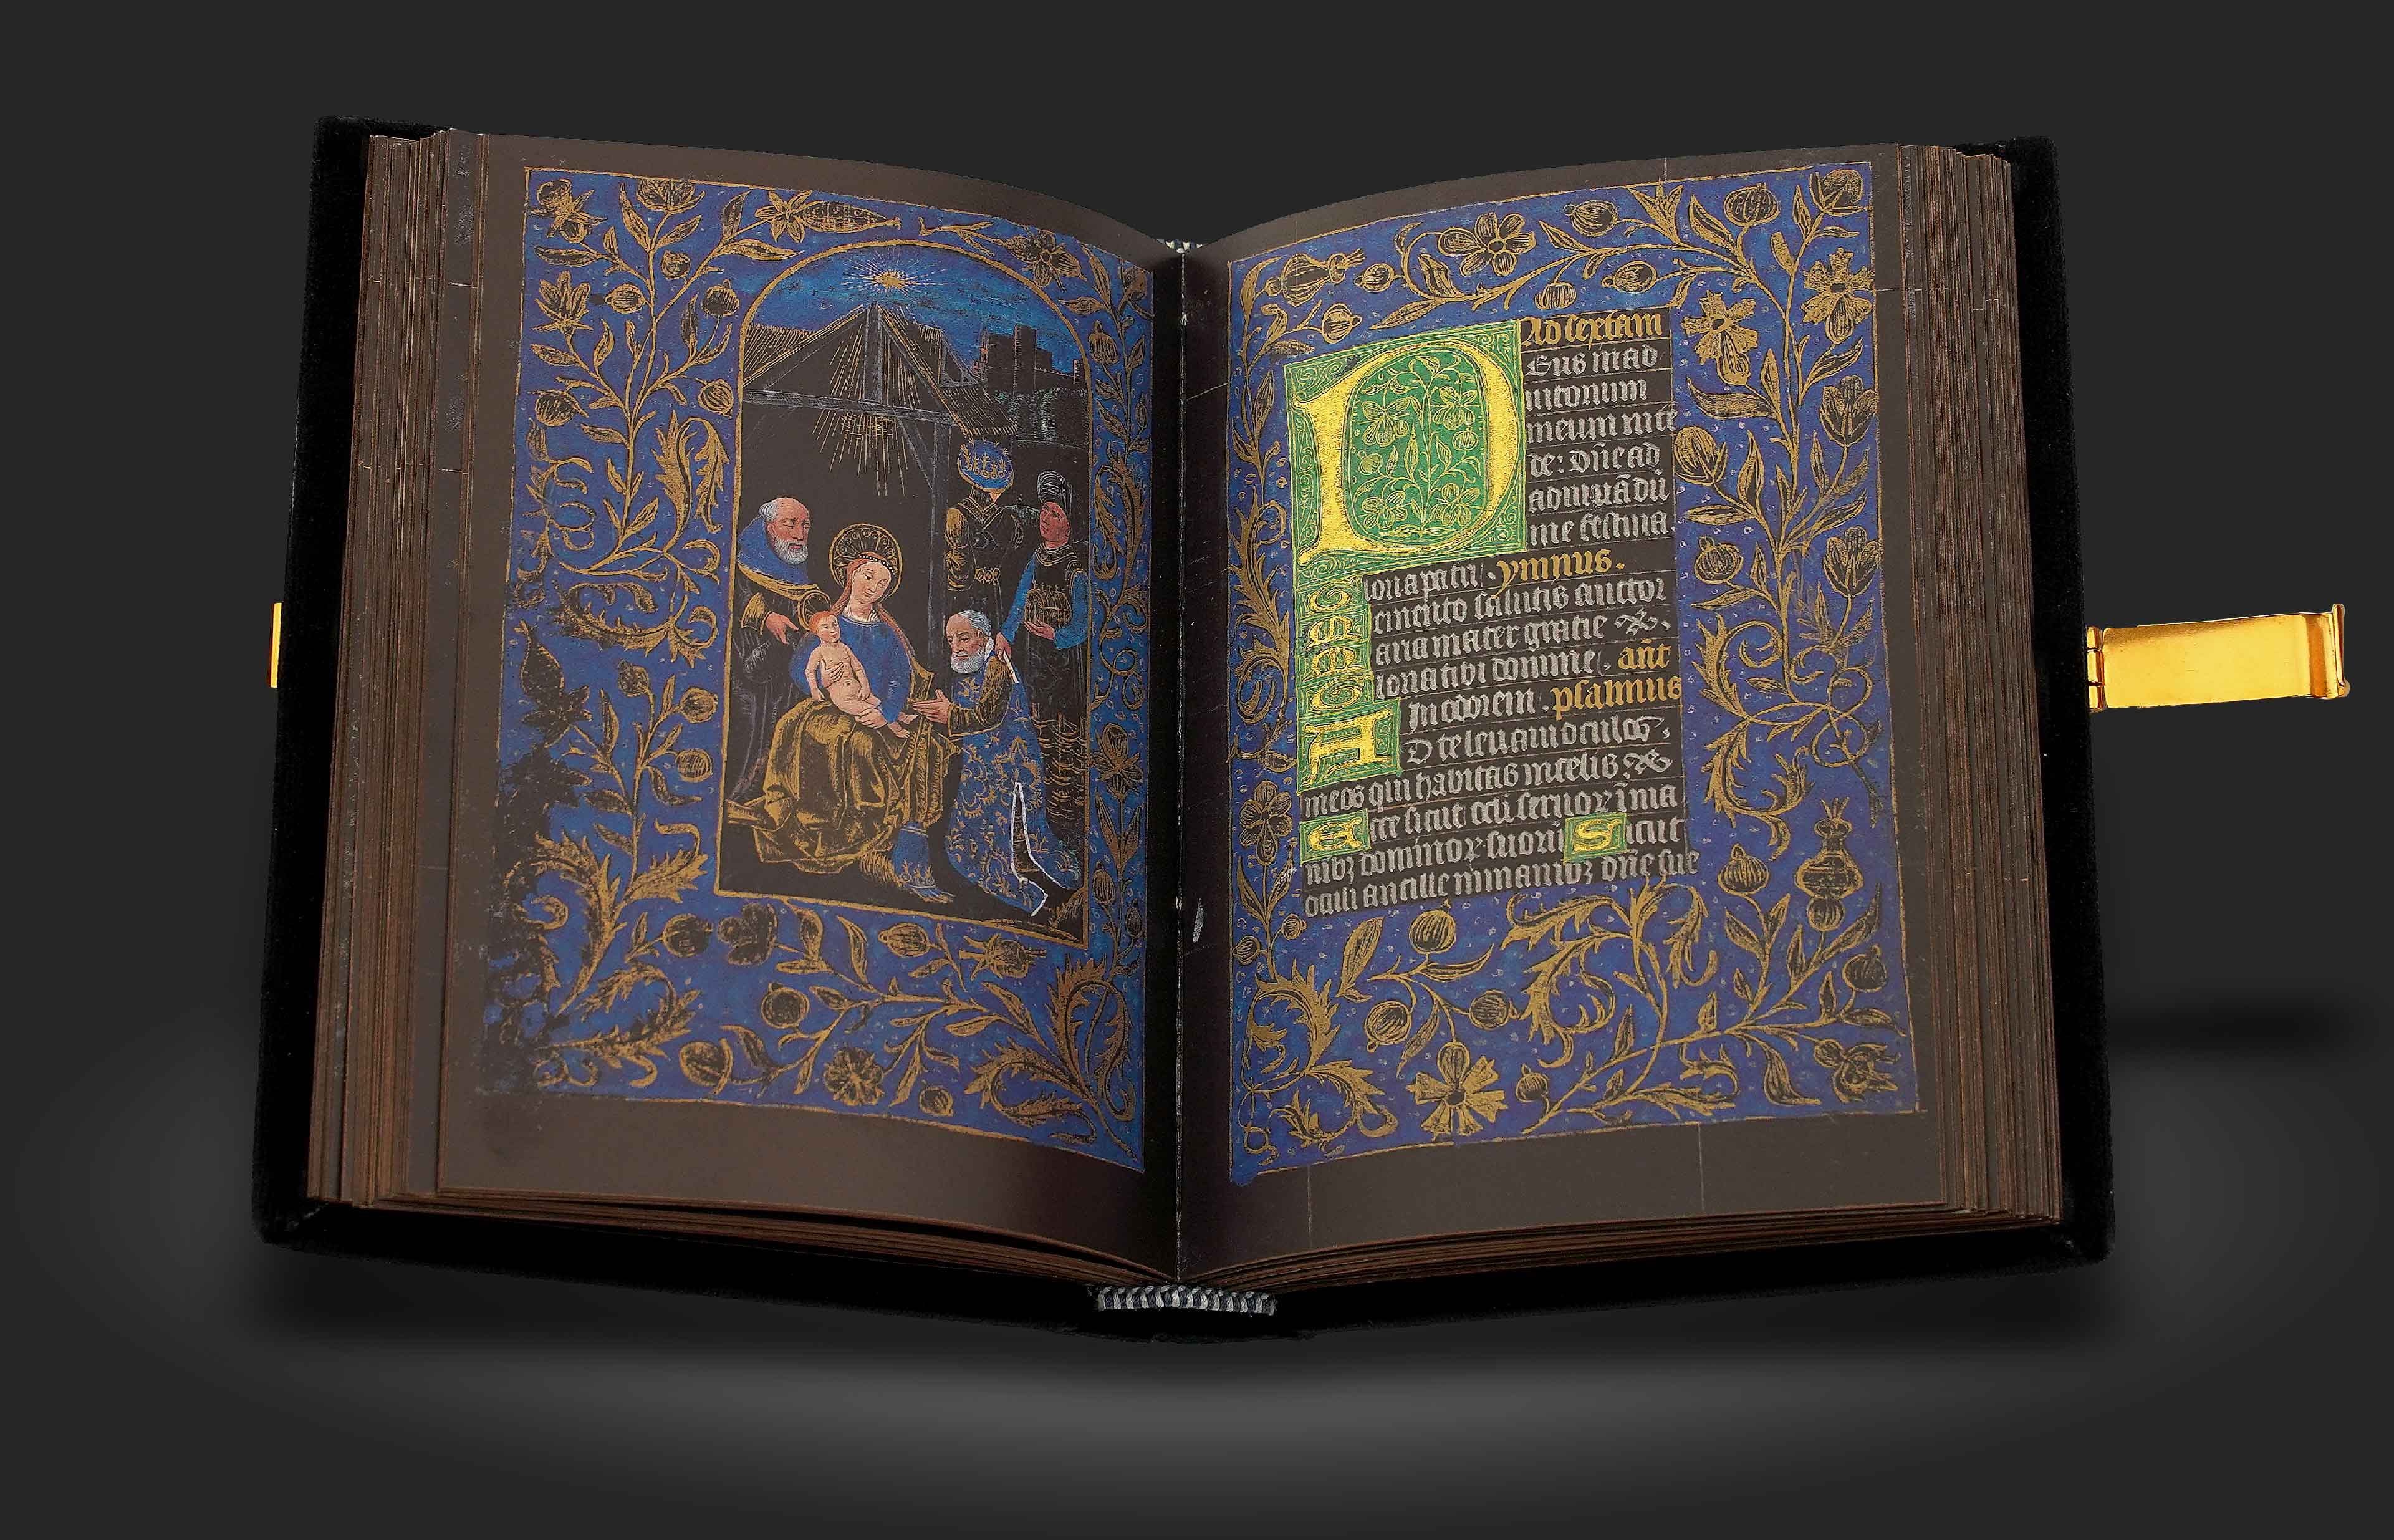 Ad sextam
Deus in ad
iutorium
meum inte
de: dñe ad
adiuuādū
me festina.
Gloria patri. ymnus.
Memento salutis auctor
Maria mater gratie &c.
Gloria tibi domine. añt
In odorem. psalmus
AD te leuaui oculos
meos qui habitas in celis. &
Ecce sicut oculi seruoꝝ ī ma
nibꝫ dominoꝝ suorū Sicut
oculi ancille in manibꝫ dñe sue